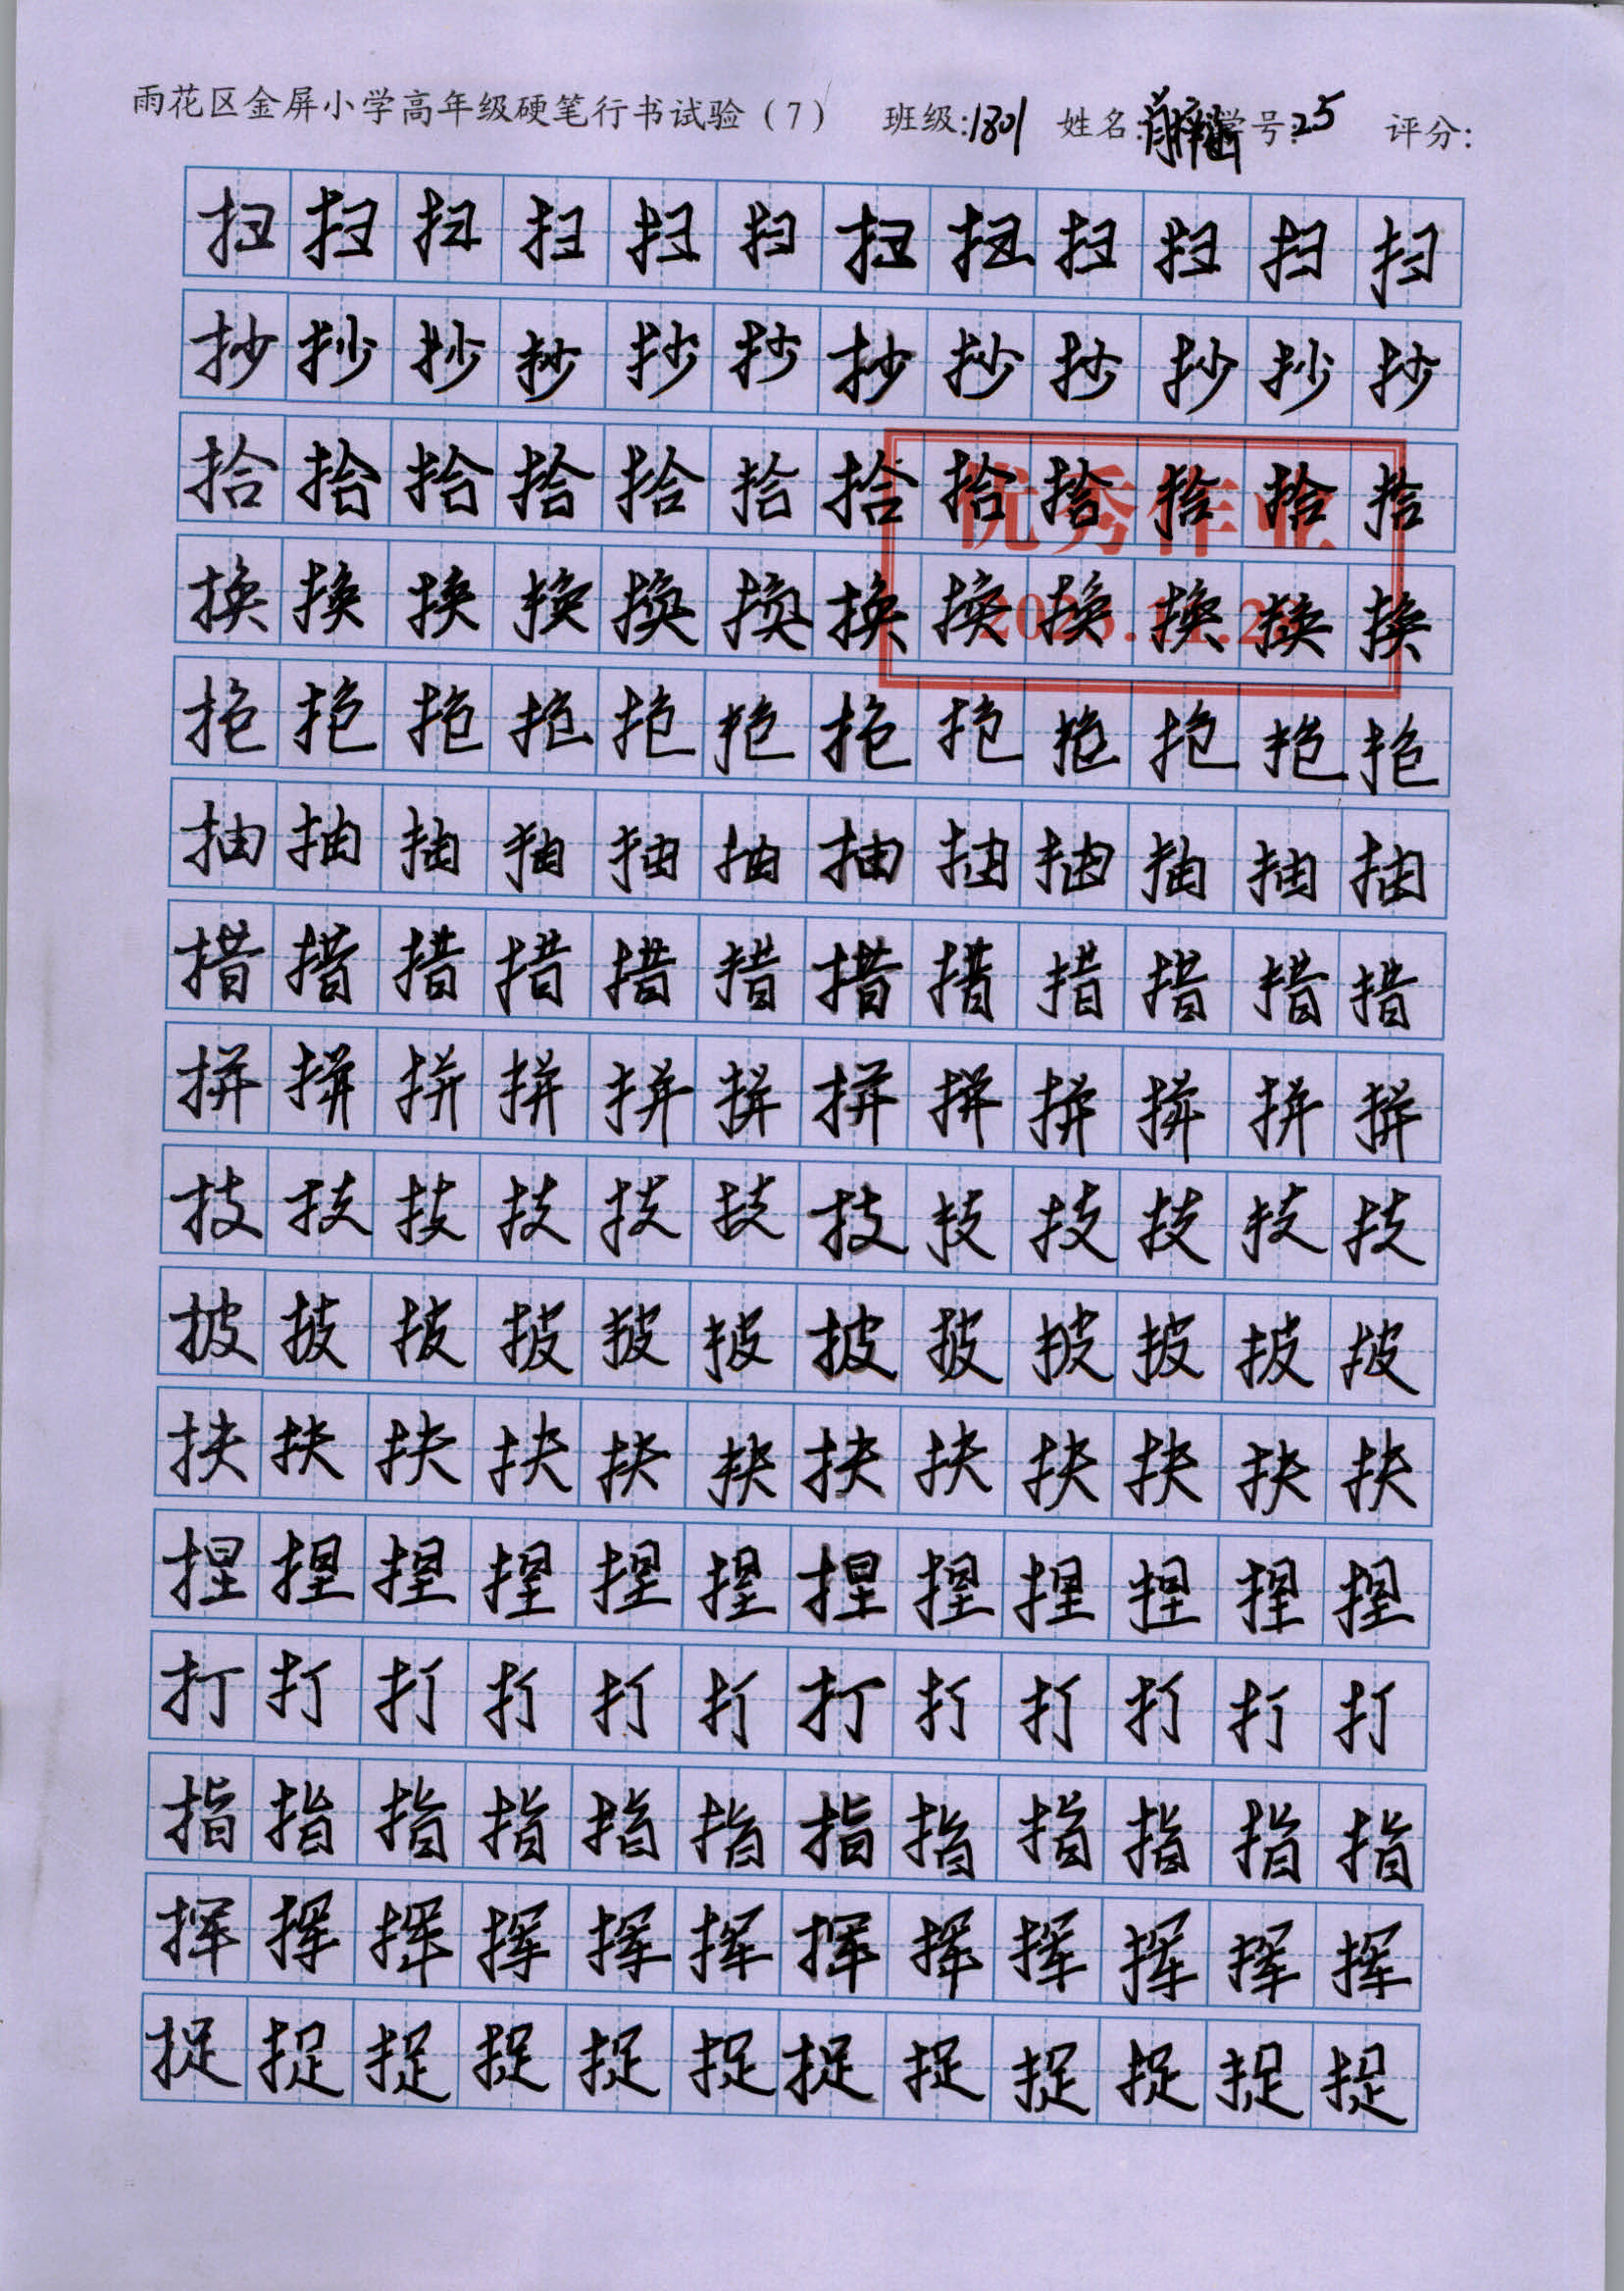 雨花区金屏小学高年级硬笔行书试验（7） 班级:1801 姓名: 学号:25 评分:
扫扫扫扫扫扫扫扫扫扫扫扫
抄抄抄抄抄抄抄抄抄抄抄抄
拾拾拾拾拾拾拾拾拾拾拾拾
优秀作业
换换换换换换换换换换换换
抱抱抱抱抱抱抱抱抱抱抱抱
抽抽抽抽抽抽抽抽抽抽抽抽
措措措措措措措措措措措措
拼拼拼拼拼拼拼拼拼拼拼拼
技技技技技技技技技技技技
披披披披披披披披披披披披
扶扶扶扶扶扶扶扶扶扶扶扶
捏捏捏捏捏捏捏捏捏捏捏捏
打打打打打打打打打打打打
指指指指指指指指指指指指
挥挥挥挥挥挥挥挥挥挥挥挥
捉捉捉捉捉捉捉捉捉捉捉捉